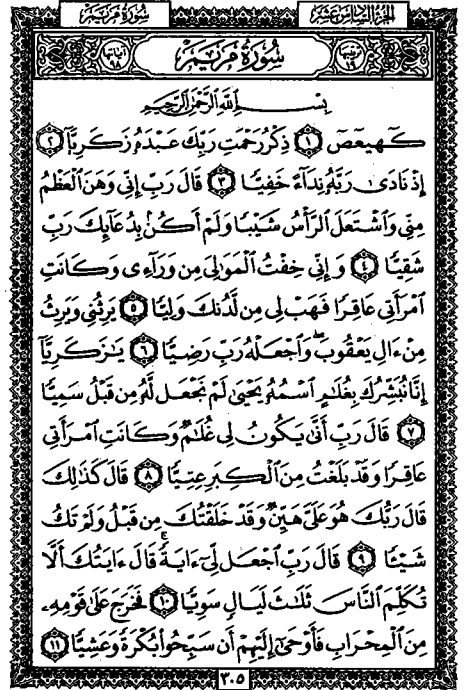 سُورَةُ مَرْيَمَ الجُزءُ السَّادِسُ عَشَرَ
آياتها ٩٨ سُورَةُ مَرْيَمَ ترتيبها ١٩
بِسْمِ اللَّهِ الرَّحْمَٰنِ الرَّحِيمِ
كٓهيعٓصٓ ١ ذِكْرُ رَحْمَتِ رَبِّكَ عَبْدَهُۥ زَكَرِيَّآ ٢
إِذْ نَادَىٰ رَبَّهُۥ نِدَآءً خَفِيًّا ٣ قَالَ رَبِّ إِنِّى وَهَنَ ٱلْعَظْمُ
مِنِّى وَٱشْتَعَلَ ٱلرَّأْسُ شَيْبًا وَلَمْ أَكُنۢ بِدُعَآئِكَ رَبِّ
شَقِيًّا ٤ وَإِنِّى خِفْتُ ٱلْمَوَٰلِىَ مِن وَرَآءِى وَكَانَتِ
ٱمْرَأَتِى عَاقِرًا فَهَبْ لِى مِن لَّدُنكَ وَلِيًّا ٥ يَرِثُنِى وَيَرِثُ
مِنْ ءَالِ يَعْقُوبَ ۖ وَٱجْعَلْهُ رَبِّ رَضِيًّا ٦ يَٰزَكَرِيَّآ
إِنَّا نُبَشِّرُكَ بِغُلَٰمٍ ٱسْمُهُۥ يَحْيَىٰ لَمْ نَجْعَل لَّهُۥ مِن قَبْلُ سَمِيًّا
٧ قَالَ رَبِّ أَنَّىٰ يَكُونُ لِى غُلَٰمٌ وَكَانَتِ ٱمْرَأَتِى
عَاقِرًا وَقَدْ بَلَغْتُ مِنَ ٱلْكِبَرِ عِتِيًّا ٨ قَالَ كَذَٰلِكَ
قَالَ رَبُّكَ هُوَ عَلَىَّ هَيِّنٌ وَقَدْ خَلَقْتُكَ مِن قَبْلُ وَلَمْ تَكُ
شَيْـًٔا ٩ قَالَ رَبِّ ٱجْعَل لِّىٓ ءَايَةً ۚ قَالَ ءَايَتُكَ أَلَّا
تُكَلِّمَ ٱلنَّاسَ ثَلَٰثَ لَيَالٍ سَوِيًّا ١٠ فَخَرَجَ عَلَىٰ قَوْمِهِۦ
مِنَ ٱلْمِحْرَابِ فَأَوْحَىٰٓ إِلَيْهِمْ أَن سَبِّحُوا۟ بُكْرَةً وَعَشِيًّا ١١
٣٠٥